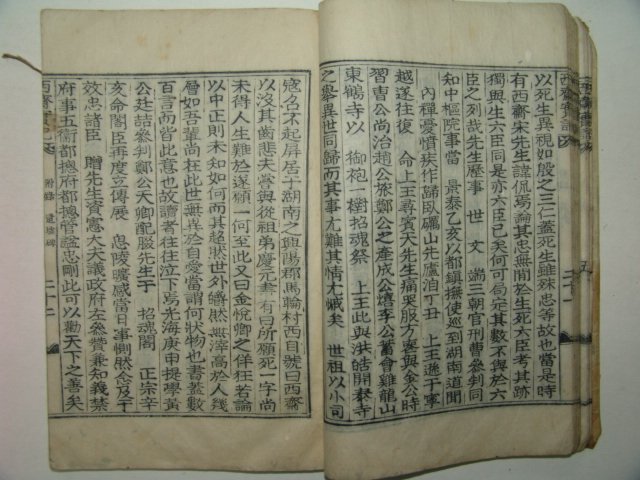 以死生異視如殷之三仁蓋死生雖殊忠等故也當是時
有西齋宋先生諱侃焉論其忠無間於生死六臣考其跡
獨與生六臣同是亦六臣已矣何可局定其數而不與於六
臣之列哉先生歷事 世文端三朝官刑曹參判同
知中樞院事當 景泰乙亥以都鎭撫使巡到湖南道聞
內禪憂憤疾作歸臥礪山先廬泊丁丑 上王遜于寧
越遂往復 命上王尋賓天先生痛哭服方喪與金公時
習曺公尚治趙公旅鄭公之產成公熺李公蓄會雞龍山
東鶴寺以 御袍一樹招魂祭 上王此與洪皓開泰寺
之擧異世同歸而其事尤難其情尤慽矣 世祖以小司
寇召不起屛居于湖南之興陽郡馬輪村西自號曰西齋
以沒其齒悲夫嘗與從祖弟慶元書有曰所願死一字尚
未得人生難於遂願一何至此又曰金悅卿之佯狂若論
以中正則未知如何而其超然世外皭然無滓高於人幾
層如吾輩尚在此世無異於自愛當謂何狀物也書蓋數
百言而皆此意也故讀者往往泣下焉先海庚申提學黃
公廷喆參判鄭公天卿配服先生于 招魂閣 正宗辛
亥命閣臣再度立傳展 思陵曠感當日事惻然念及于
效忠諸臣 贈先生資憲大夫議政府左參贊兼知義禁
府事五衛都摠府都摠管諡忠剛此可以勸天下之善矣
附錄 遺墟碑
二十二
二十一